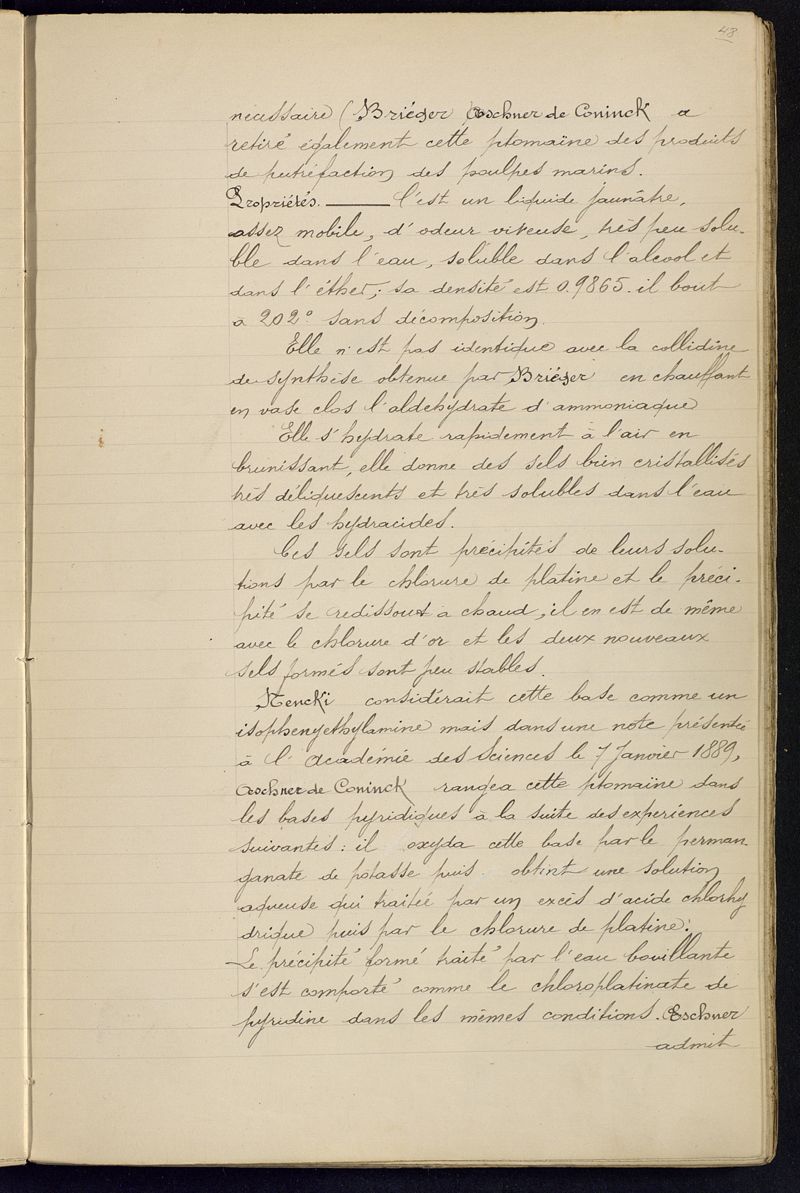 48
nécessaire (Briéger) Œschner de Coninck a
retiré également cette ptomaïne des produits
de putréfaction des poulpes marins.
Propriétés. ——— C'est un liquide jaunâtre,
assez mobile, d'odeur vireuse, très peu solu-
ble dans l'eau, soluble dans l'alcool et
dans l'éther; sa densité est 0.9865. il bout
à 202° sans décomposition.
Elle n'est pas identique avec la collidine
de synthèse obtenue par Briéger en chauffant
en vase clos l'aldehydrate d'ammoniaque
Elle s'hydrate rapidement à l'air en
brunissant, elle donne des sels bien cristallisés
très déliquescents et très solubles dans l'eau
avec les hydracides.
Ces sels sont précipités de leurs solu-
tions par le chlorure de platine et le préci-
pité se redissout à chaud, il en est de même
avec le chlorure d'or et les deux nouveaux
sels formés sont peu stables.
Nencki considérait cette base comme un
isophenyethylamine mais dans une note présentée
à l'Académie des Sciences le 7 Janvier 1889,
Œschner de Coninck rangea cette ptomaïne dans
les bases pyridiques à la suite des experiences
suivantes: il oxyda cette base par le perman-
ganate de potasse puis obtint une solution
aqueuse qui traitée par un excès d'acide chlorhy
drique puis par le chlorure de platine:
Le précipité formé traité par l'eau bouillante
s'est comporté comme le chloroplatinate de
pyridine dans les mêmes conditions. Œschner
admit